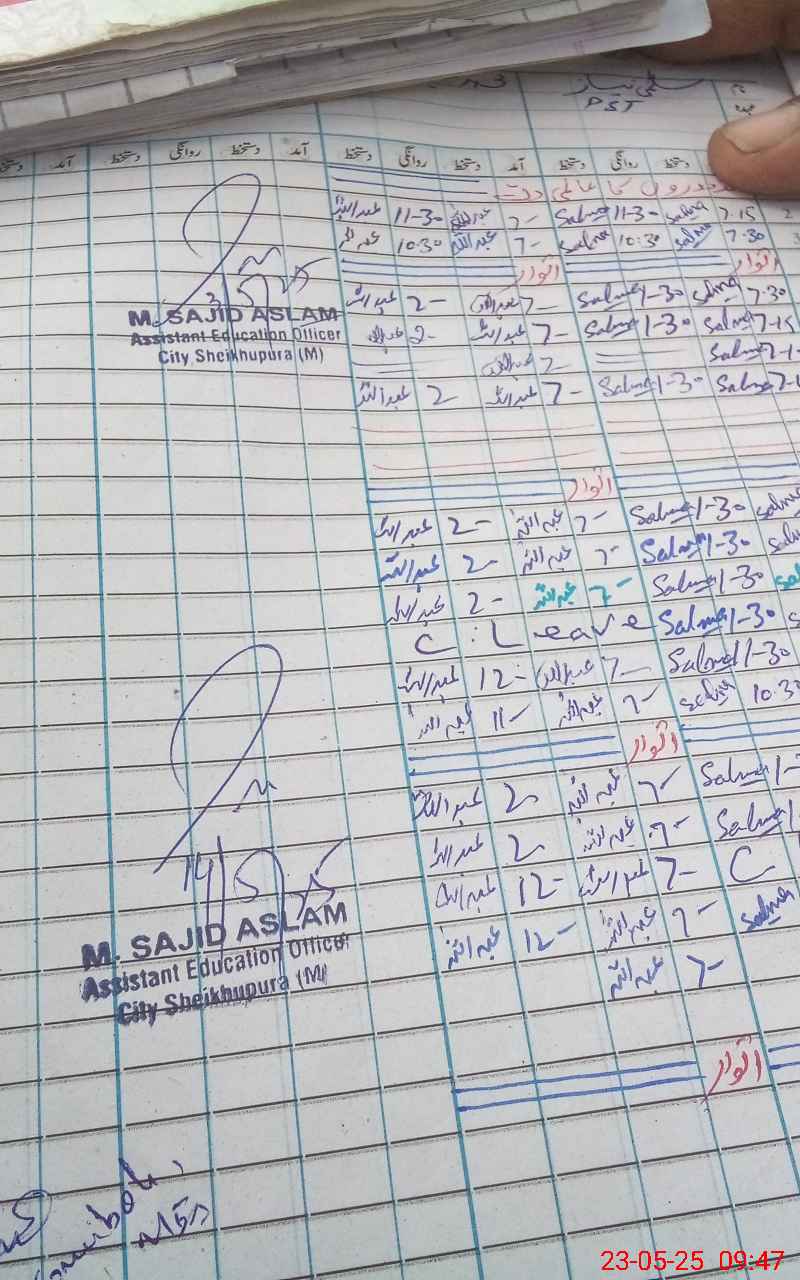 سلمیٰ نیاز
PST
دستخط روانگی دستخط آمد دستخط روانگی دستخط آمد دستخط روانگی دستخط آمد
مزدوروں کا عالمی دن
7.15 Salma 11-30 Salma 7- عبداللہ 11-30 عبداللہ
7.30 Salma 10:30 Salma 7- عبداللہ 10.30 عبداللہ
اتوار اتوار
7.30 Salma 1-30 Salma 7- عبداللہ 2- عبداللہ
7-15 Salma 1-30 Salma 7- عبداللہ 2- عبداللہ
Salma 7- عبداللہ
Salma 1-30 Salma 7- عبداللہ 2 عبداللہ
اتوار
Salma 1-30 Salma 7- عبداللہ 2- عبداللہ
Salma 1-30 7- عبداللہ 2- عبداللہ
Salma 1-30 7- عبداللہ 2- عبداللہ
Salma 1-30 C. Leave
Salma 1-30 7- عبداللہ 12- عبداللہ
10.3 Salma 7- عبداللہ 11- عبداللہ
اتوار
Salma 7- عبداللہ 2- عبداللہ
Salma 7- عبداللہ 2- عبداللہ
C 7- عبداللہ 12- عبداللہ
Salma 7- عبداللہ 12- عبداللہ
7- عبداللہ
اتوار
M. SAJID ASLAM
Assistant Education Officer
City Sheikhupura (M)
14/5/25
M. SAJID ASLAM
Assistant Education Officer
City Sheikhupura (M)
23-05-25 09:47